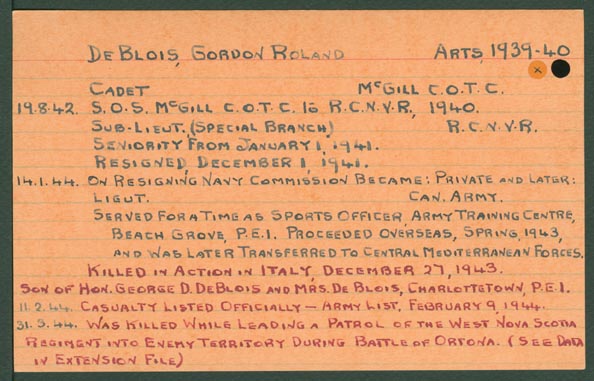 DE BLOIS, GORDON ROLAND ARTS, 1939-40
x
CADET McGILL C.O.T.C.
19.8.42. S.O.S. McGILL C.O.T.C. to R.C.N.V.R., 1940.
SUB-LIEUT. (SPECIAL BRANCH) R.C.N.V.R.
SENIORITY FROM JANUARY 1, 1941.
RESIGNED, DECEMBER 1, 1941.
14.1.44. ON RESIGNING NAVY COMMISSION BECAME: PRIVATE AND LATER:
LIEUT. CAN. ARMY.
SERVED FOR A TIME AS SPORTS OFFICER, ARMY TRAINING CENTRE,
BEACH GROVE, P.E.I. PROCEEDED OVERSEAS, SPRING, 1943,
AND WAS LATER TRANSFERRED TO CENTRAL MEDITERRANEAN FORCES.
KILLED IN ACTION IN ITALY, DECEMBER 27, 1943.
SON OF HON. GEORGE D. DEBLOIS AND MRS. DE BLOIS, CHARLOTTETOWN, P.E.I.
11.2.44. CASUALTY LISTED OFFICIALLY — ARMY LIST, FEBRUARY 9, 1944.
31.5.44. WAS KILLED WHILE LEADING A PATROL OF THE WEST NOVA SCOTIA
REGIMENT INTO ENEMY TERRITORY DURING BATTLE OF ORTONA. (SEE DATA
IN EXTENSION FILE)